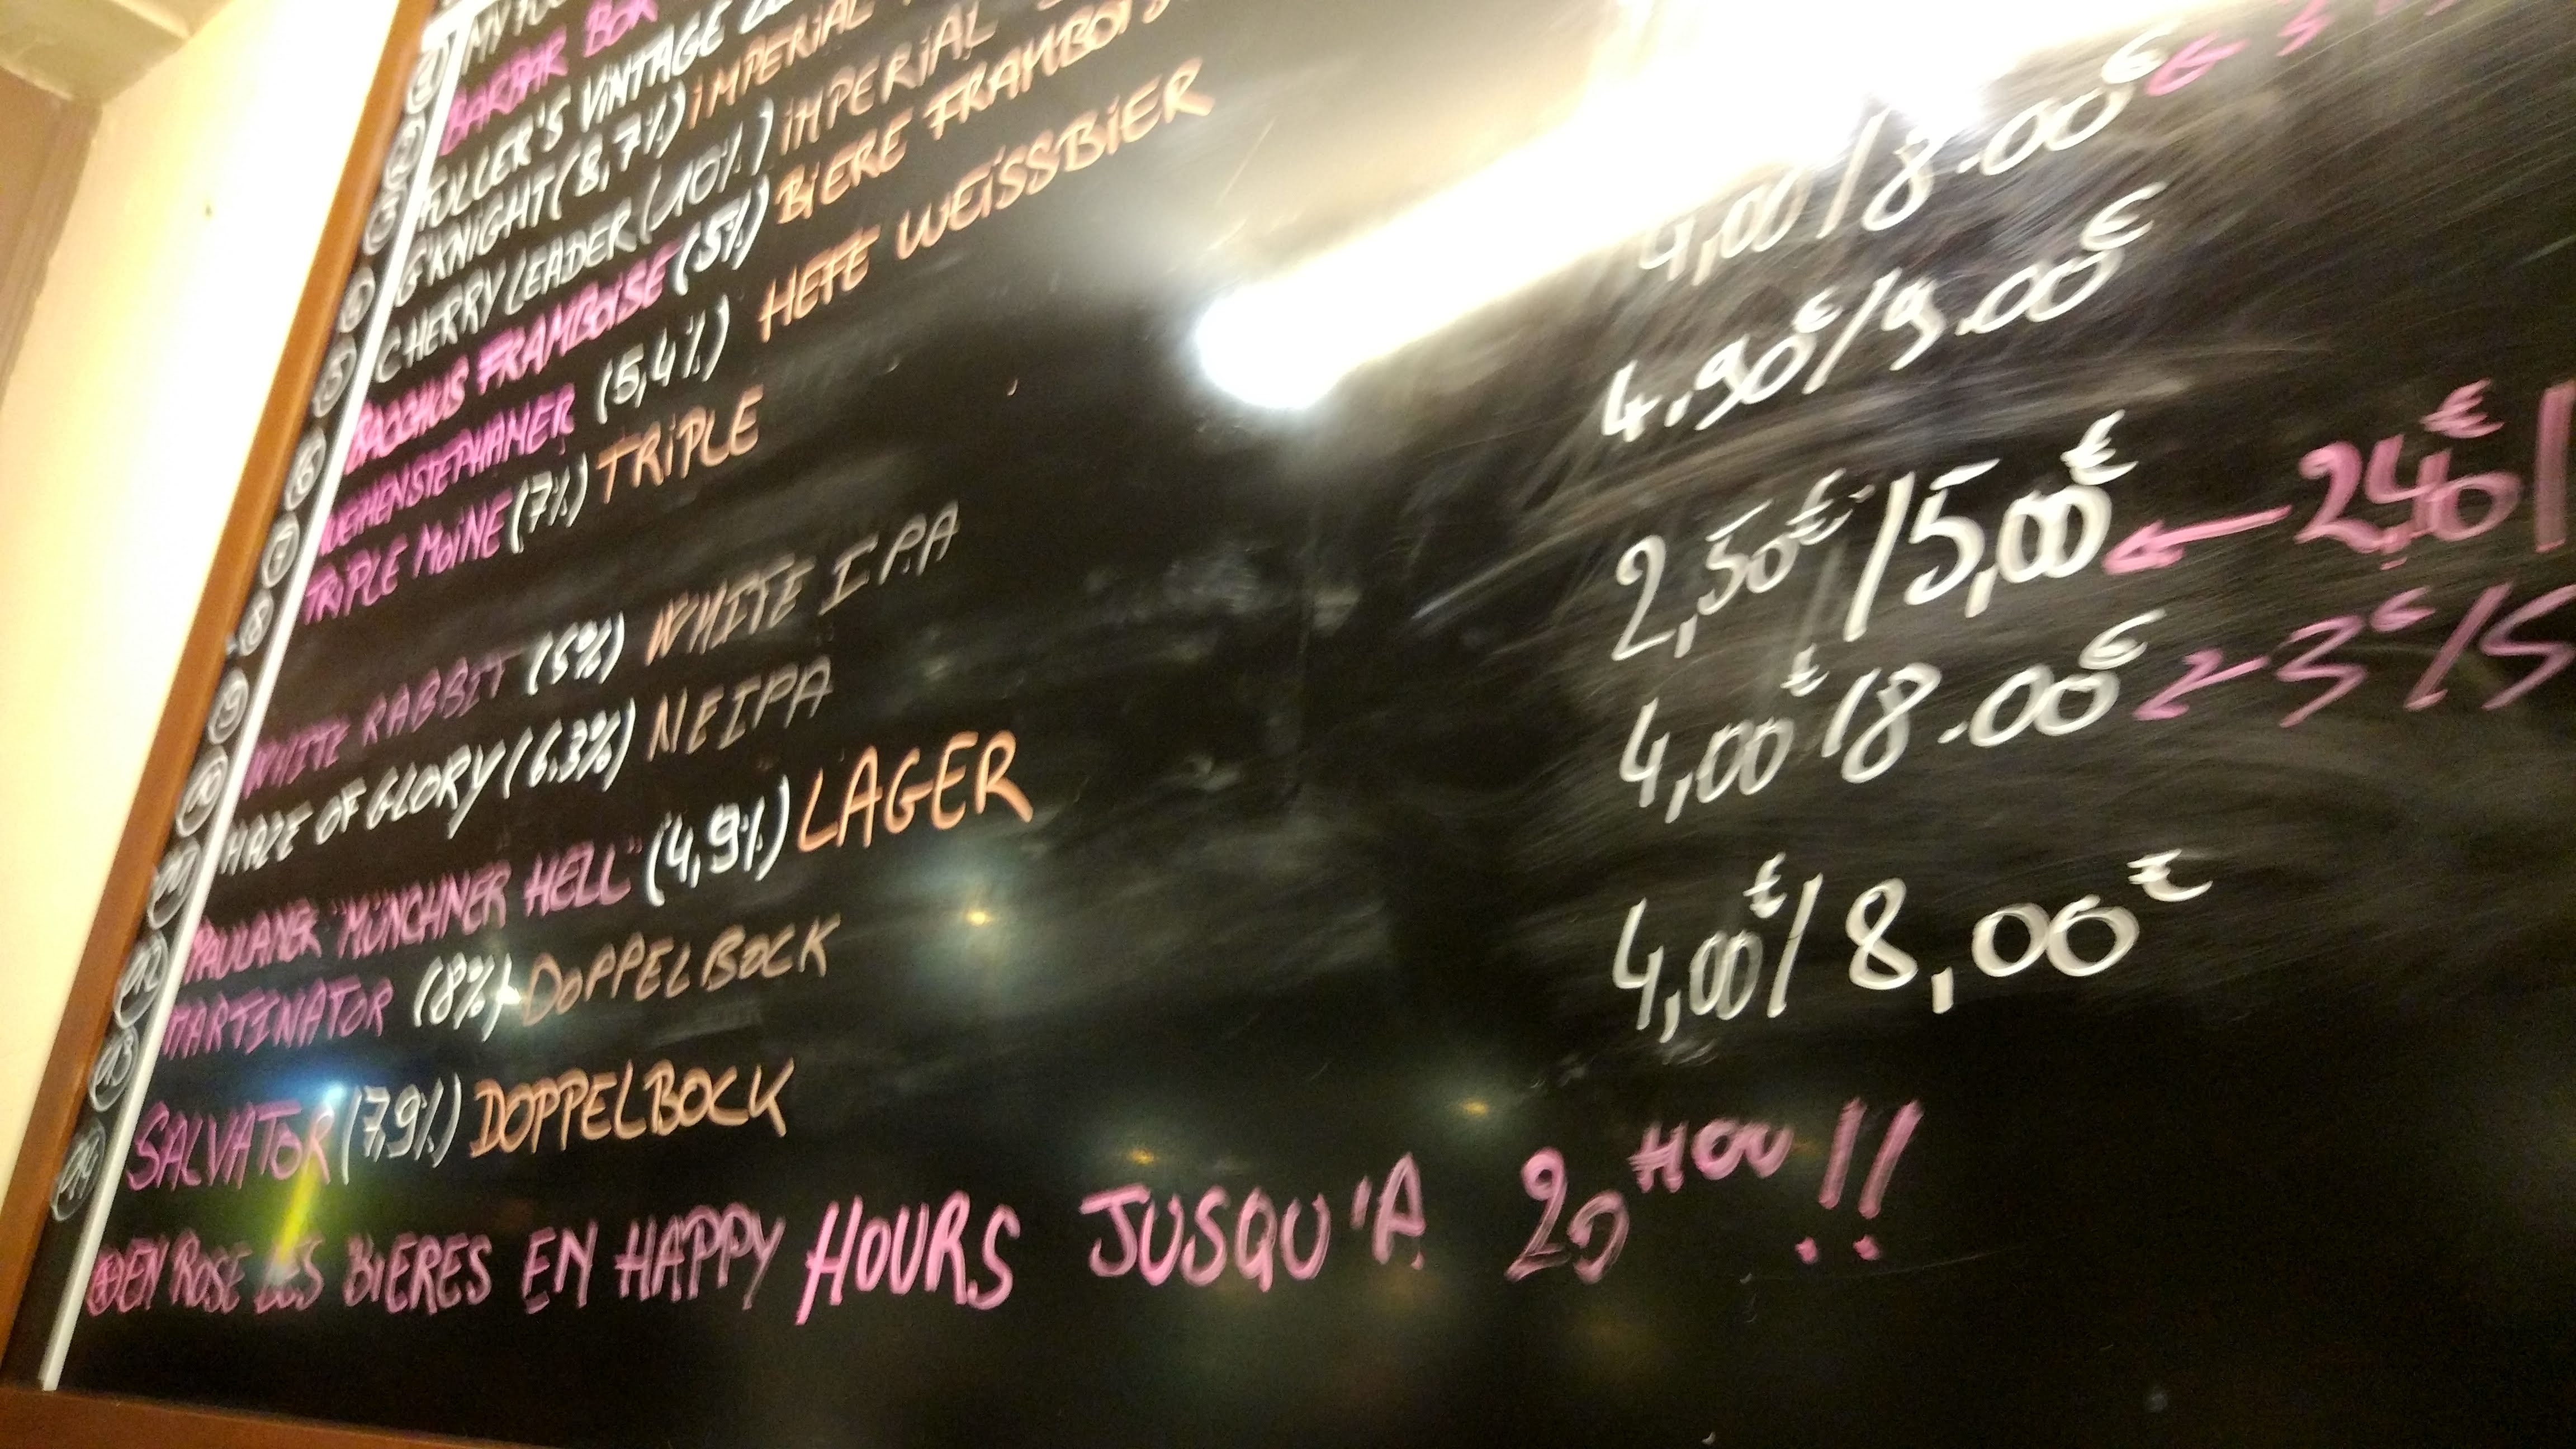 1 MY
2 BARBAR BOK
3 FULLER'S VINTAGE
4 G'KNIGHT (8,7%) IMPERIAL
5 CHERRY LEADER (10%) IMPERIAL
6 BACCHUS FRAMBOISE (5%) BIERE FRAMBOIS
7 WEIHENSTEPHANER (5,4%) HEFE WEISSBIER
8 TRIPLE MOINE (7%) TRIPLE
9 WHITE RABBIT (5%) WHITE IPA
10 HAZE OF GLORY (6.3%) NEIPA
11 PAULANER "MÜNCHNER HELL" (4,9%) LAGER
12 MARTINATOR (8%) DOPPELBOCK
13 SALVATOR (7,9%) DOPPELBOCK
14
4,00/8.00€ ← 3
4.90€/9.00€
2,50€/5,00€ ← 2,40€/
4,00€/8.00€ ← 3€/5
4,00€/8,00€
EN ROSE LES BIERES EN HAPPY HOURS JUSQU'A 20 H00 !!